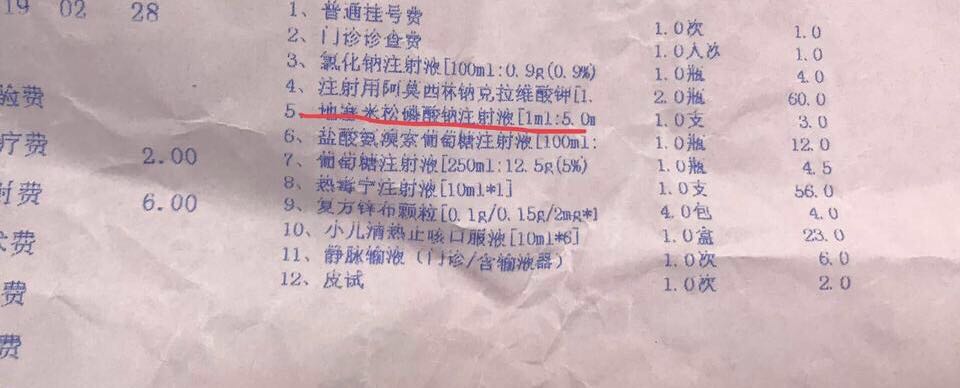 19 02 28
1、普通挂号费 1.0次 1.0
2、门诊诊查费 1.0人次 1.0
3、氯化钠注射液[100ml:0.9g(0.9%) 1.0瓶 4.0
4、注射用阿莫西林钠克拉维酸钾[1. 2.0瓶 60.0
5、地塞米松磷酸钠注射液[1ml:5.0m 1.0支 3.0
6、盐酸氨溴索葡萄糖注射液[100ml: 1.0瓶 12.0
7、葡萄糖注射液[250ml:12.5g(5%) 1.0瓶 4.5
8、热毒宁注射液[10ml*1] 1.0支 56.0
9、复方锌布颗粒[0.1g/0.15g/2mg*1 4.0包 4.0
10、小儿清热止咳口服液[10ml*6] 1.0盒 23.0
11、静脉输液（门诊/含输液器） 1.0次 6.0
12、皮试 1.0次 2.0
验费
疗费 2.00
射费 6.00
费
费
费